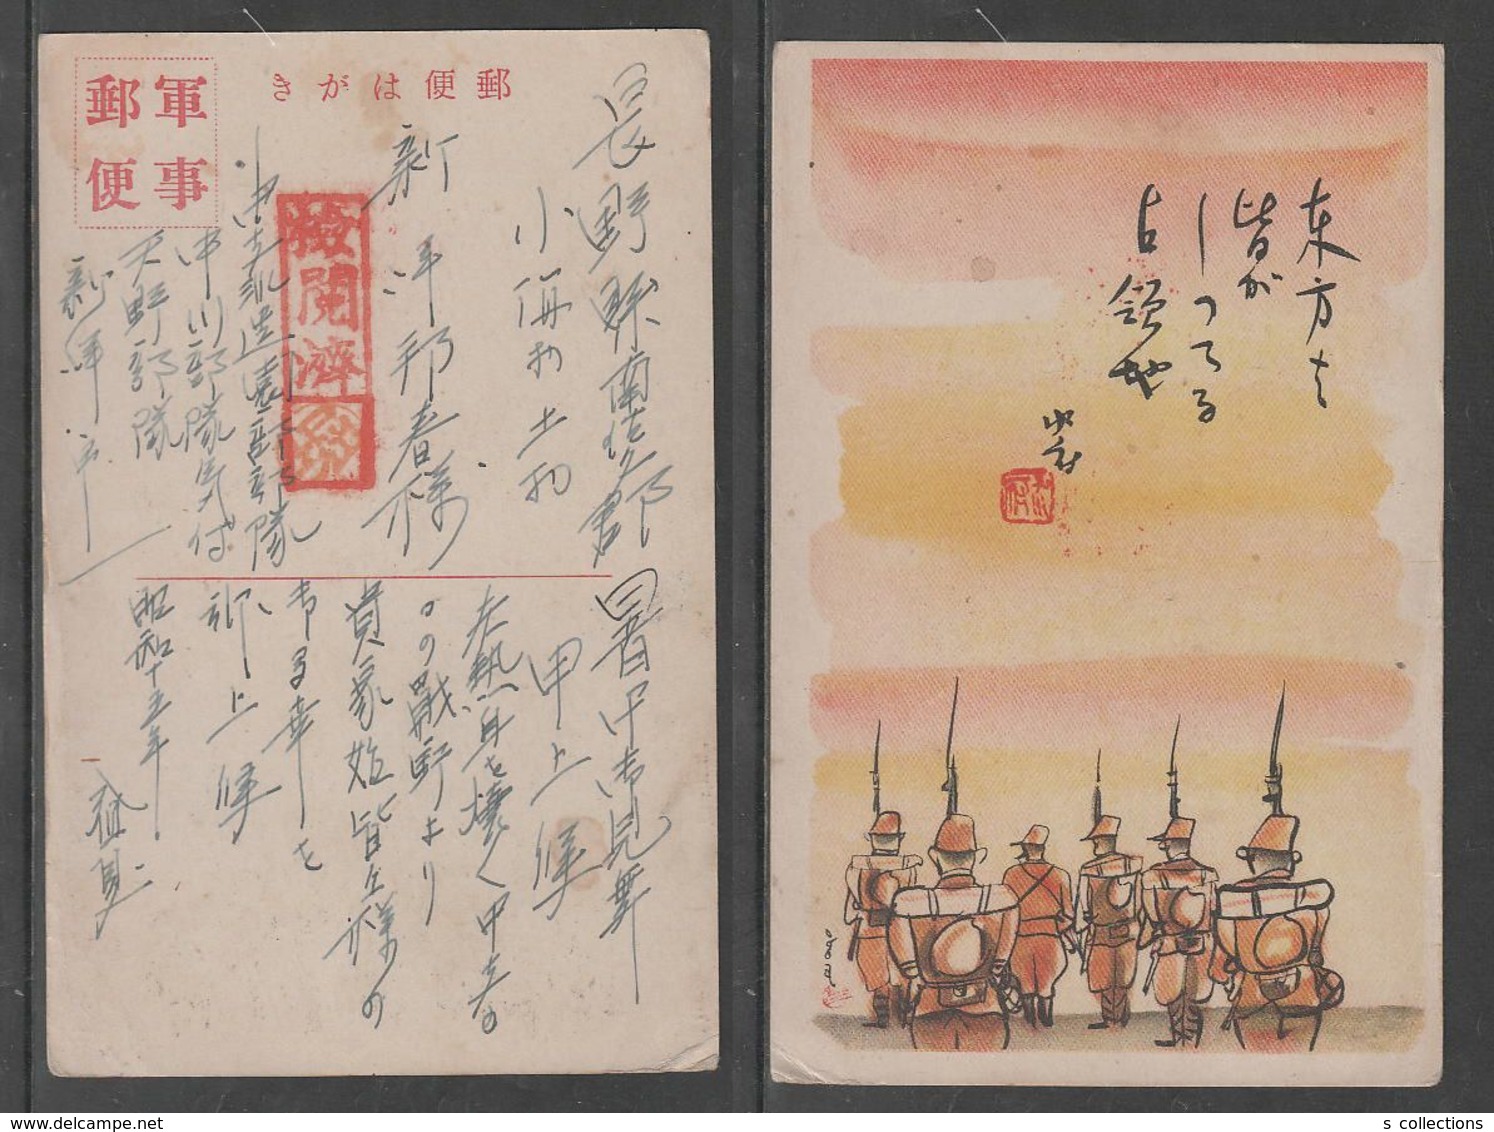 郵便はがき
軍事
郵便
検閲済
長野縣南佐久郡
小海村土村
新津邦春様
中支派遣園部部隊
中川部隊気付
天野部隊
新津
暑中御見舞
申上候
炎熱身を壊く中支の
の戦野より
貴家始皆々様の
御多幸を
祈上候
昭和十五年
盛夏
东方は
皆が
してる
占領地
s_collections